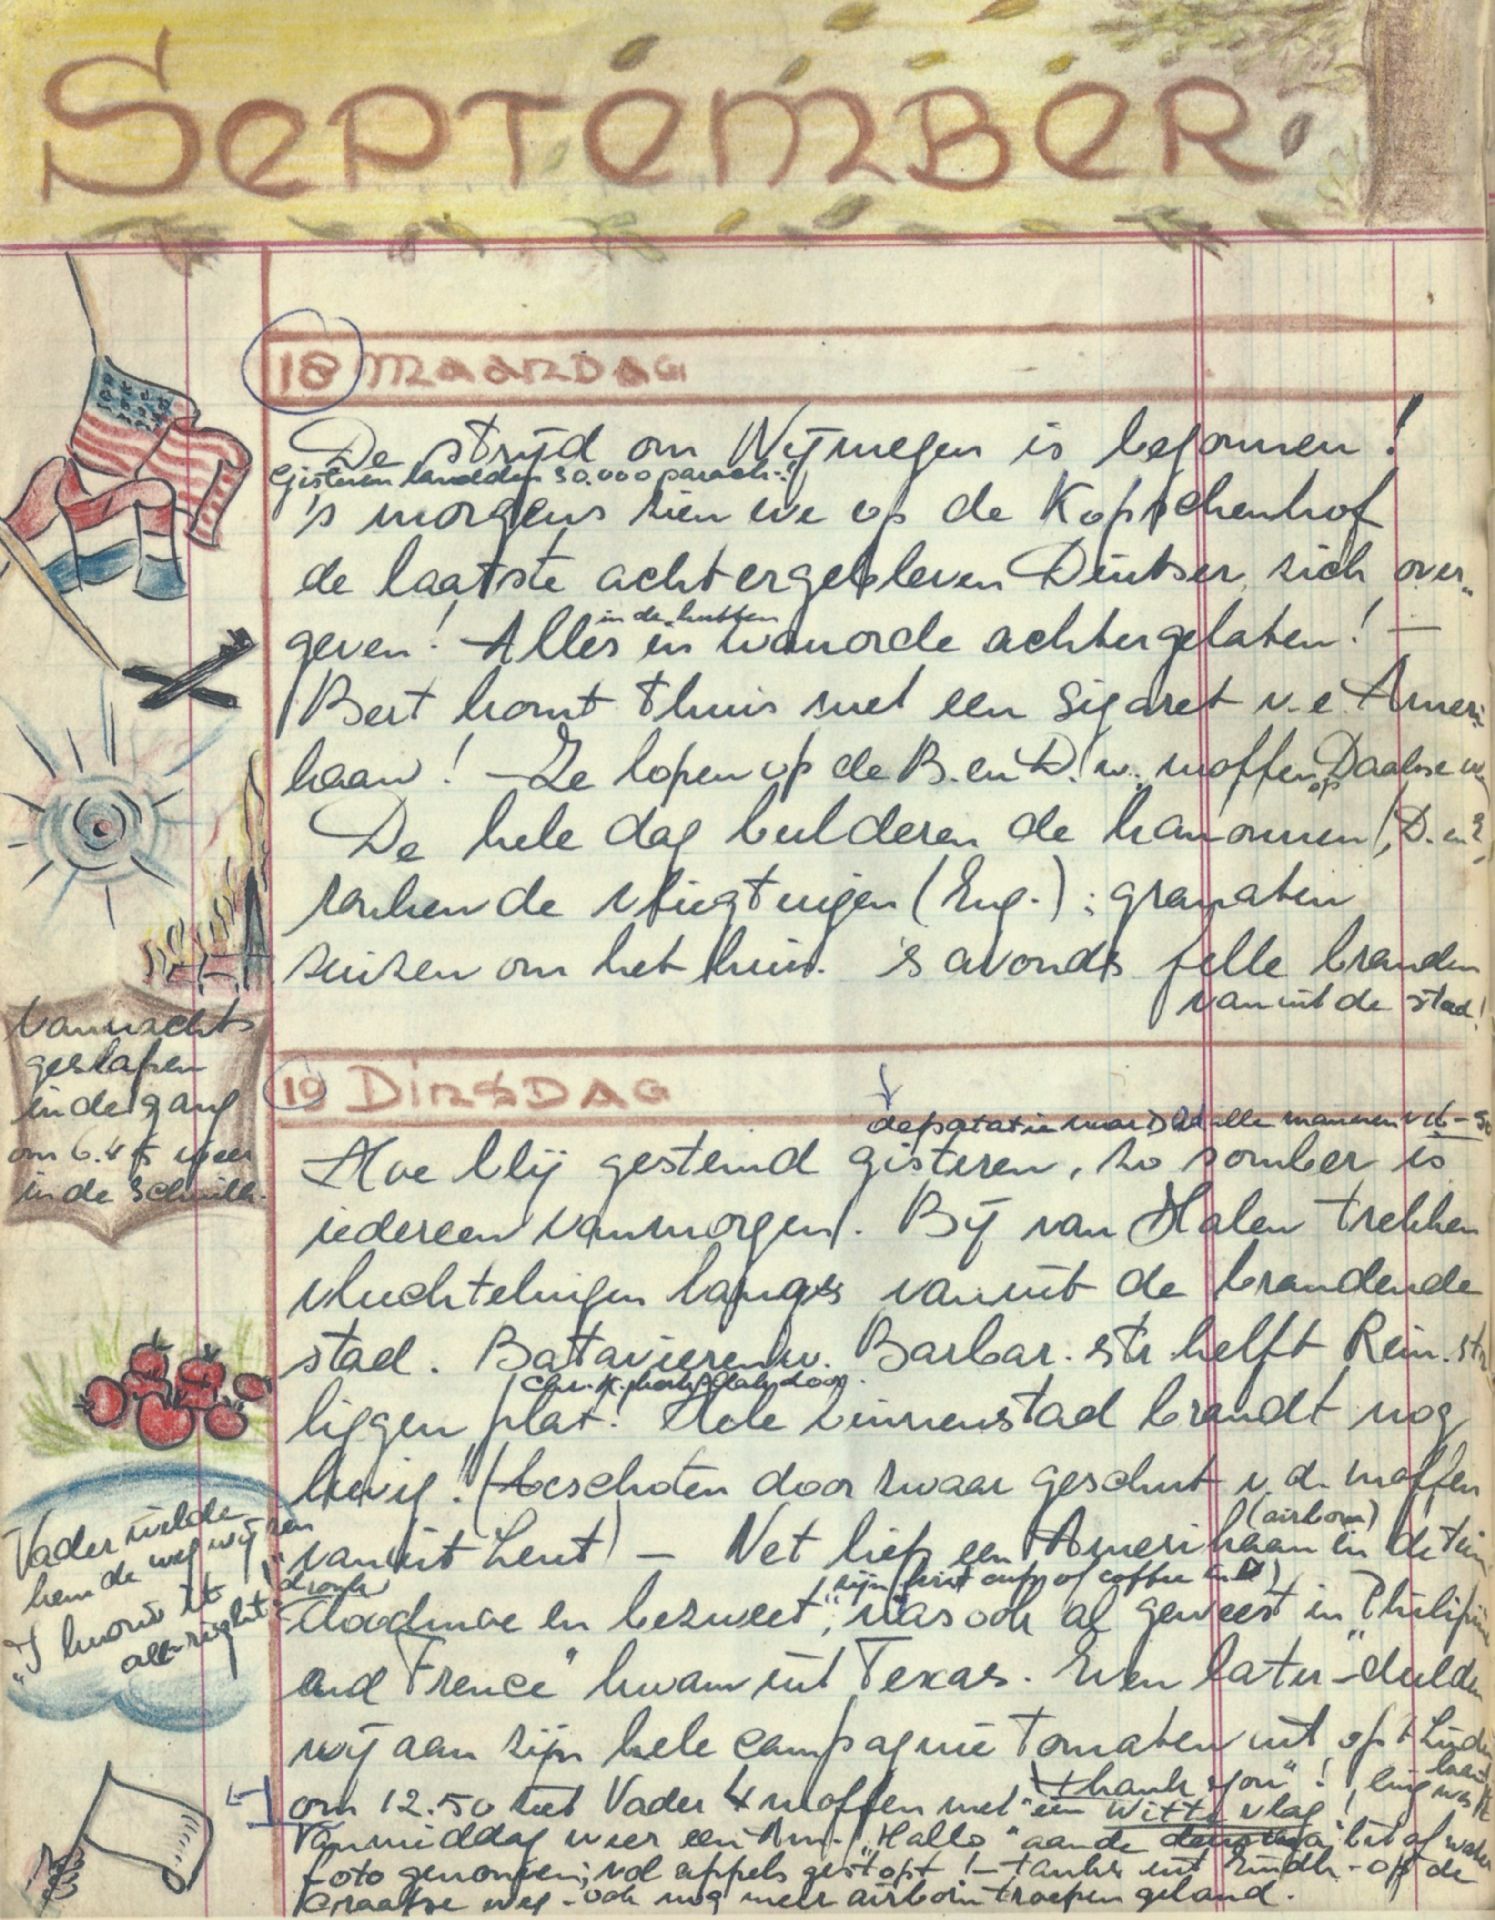 September
18 Maandag
De strijd om Nijmegen is begonnen!
Gisteren landden 30.000 parach.!
's morgens zien we op de Kopschenhof
de laatste achtergebleven Duitser zich over-
geven! Alles in wanorde achtergelaten! –
in de hutten
Bert komt thuis met een sigaret v.e. Ameri-
kaan! – Ze lopen op de B. en D.w. moffen op Daalse w
De hele dag bulderen de kanonnen, D. en E,
ronken de vliegtuigen (Eng.); granaten
suizen om het huis. 's avonds felle branden
vanuit de stad!
Vannacht
geslapen
in de gang
om 6.45 weer
in de schuilk.
19 Dinsdag
alle mannen v 16 – 50
Hoe blij gestemd gisteren, zo somber is
iedereen vanmorgen. Bij van Halen trekken
vluchtelingen langs vanuit de brandende
stad. Batavierenw. Barbar. str. helft Rein. str
liggen plat! Hele binnenstad brandt nog
Chr. K.
hevig! (beschoten door zwaar geschut v.d. moffen
vanuit Lent) – Net liep een Amerikaan in de tuin
(airborn)
doodmoe en bezweet, "was ook al geweest in Philipijne
dronk zijn first cup of coffee in
and Frence" kwam uit Texas. Even later deelden
wij aan zijn hele compagnie tomaten uit op 't
"thank you"!
Vader wilde
hem de weg wijzen
"I know it
all-right!"
om 12.50 ziet Vader 4 moffen met een witte vlag!
Vanmiddag weer een Am. "Hallo" aan de
foto genomen; vol appels gestopt! – tanks uit Eindh. – op de
Graafse weg – ook nog meer airborn troepen geland.